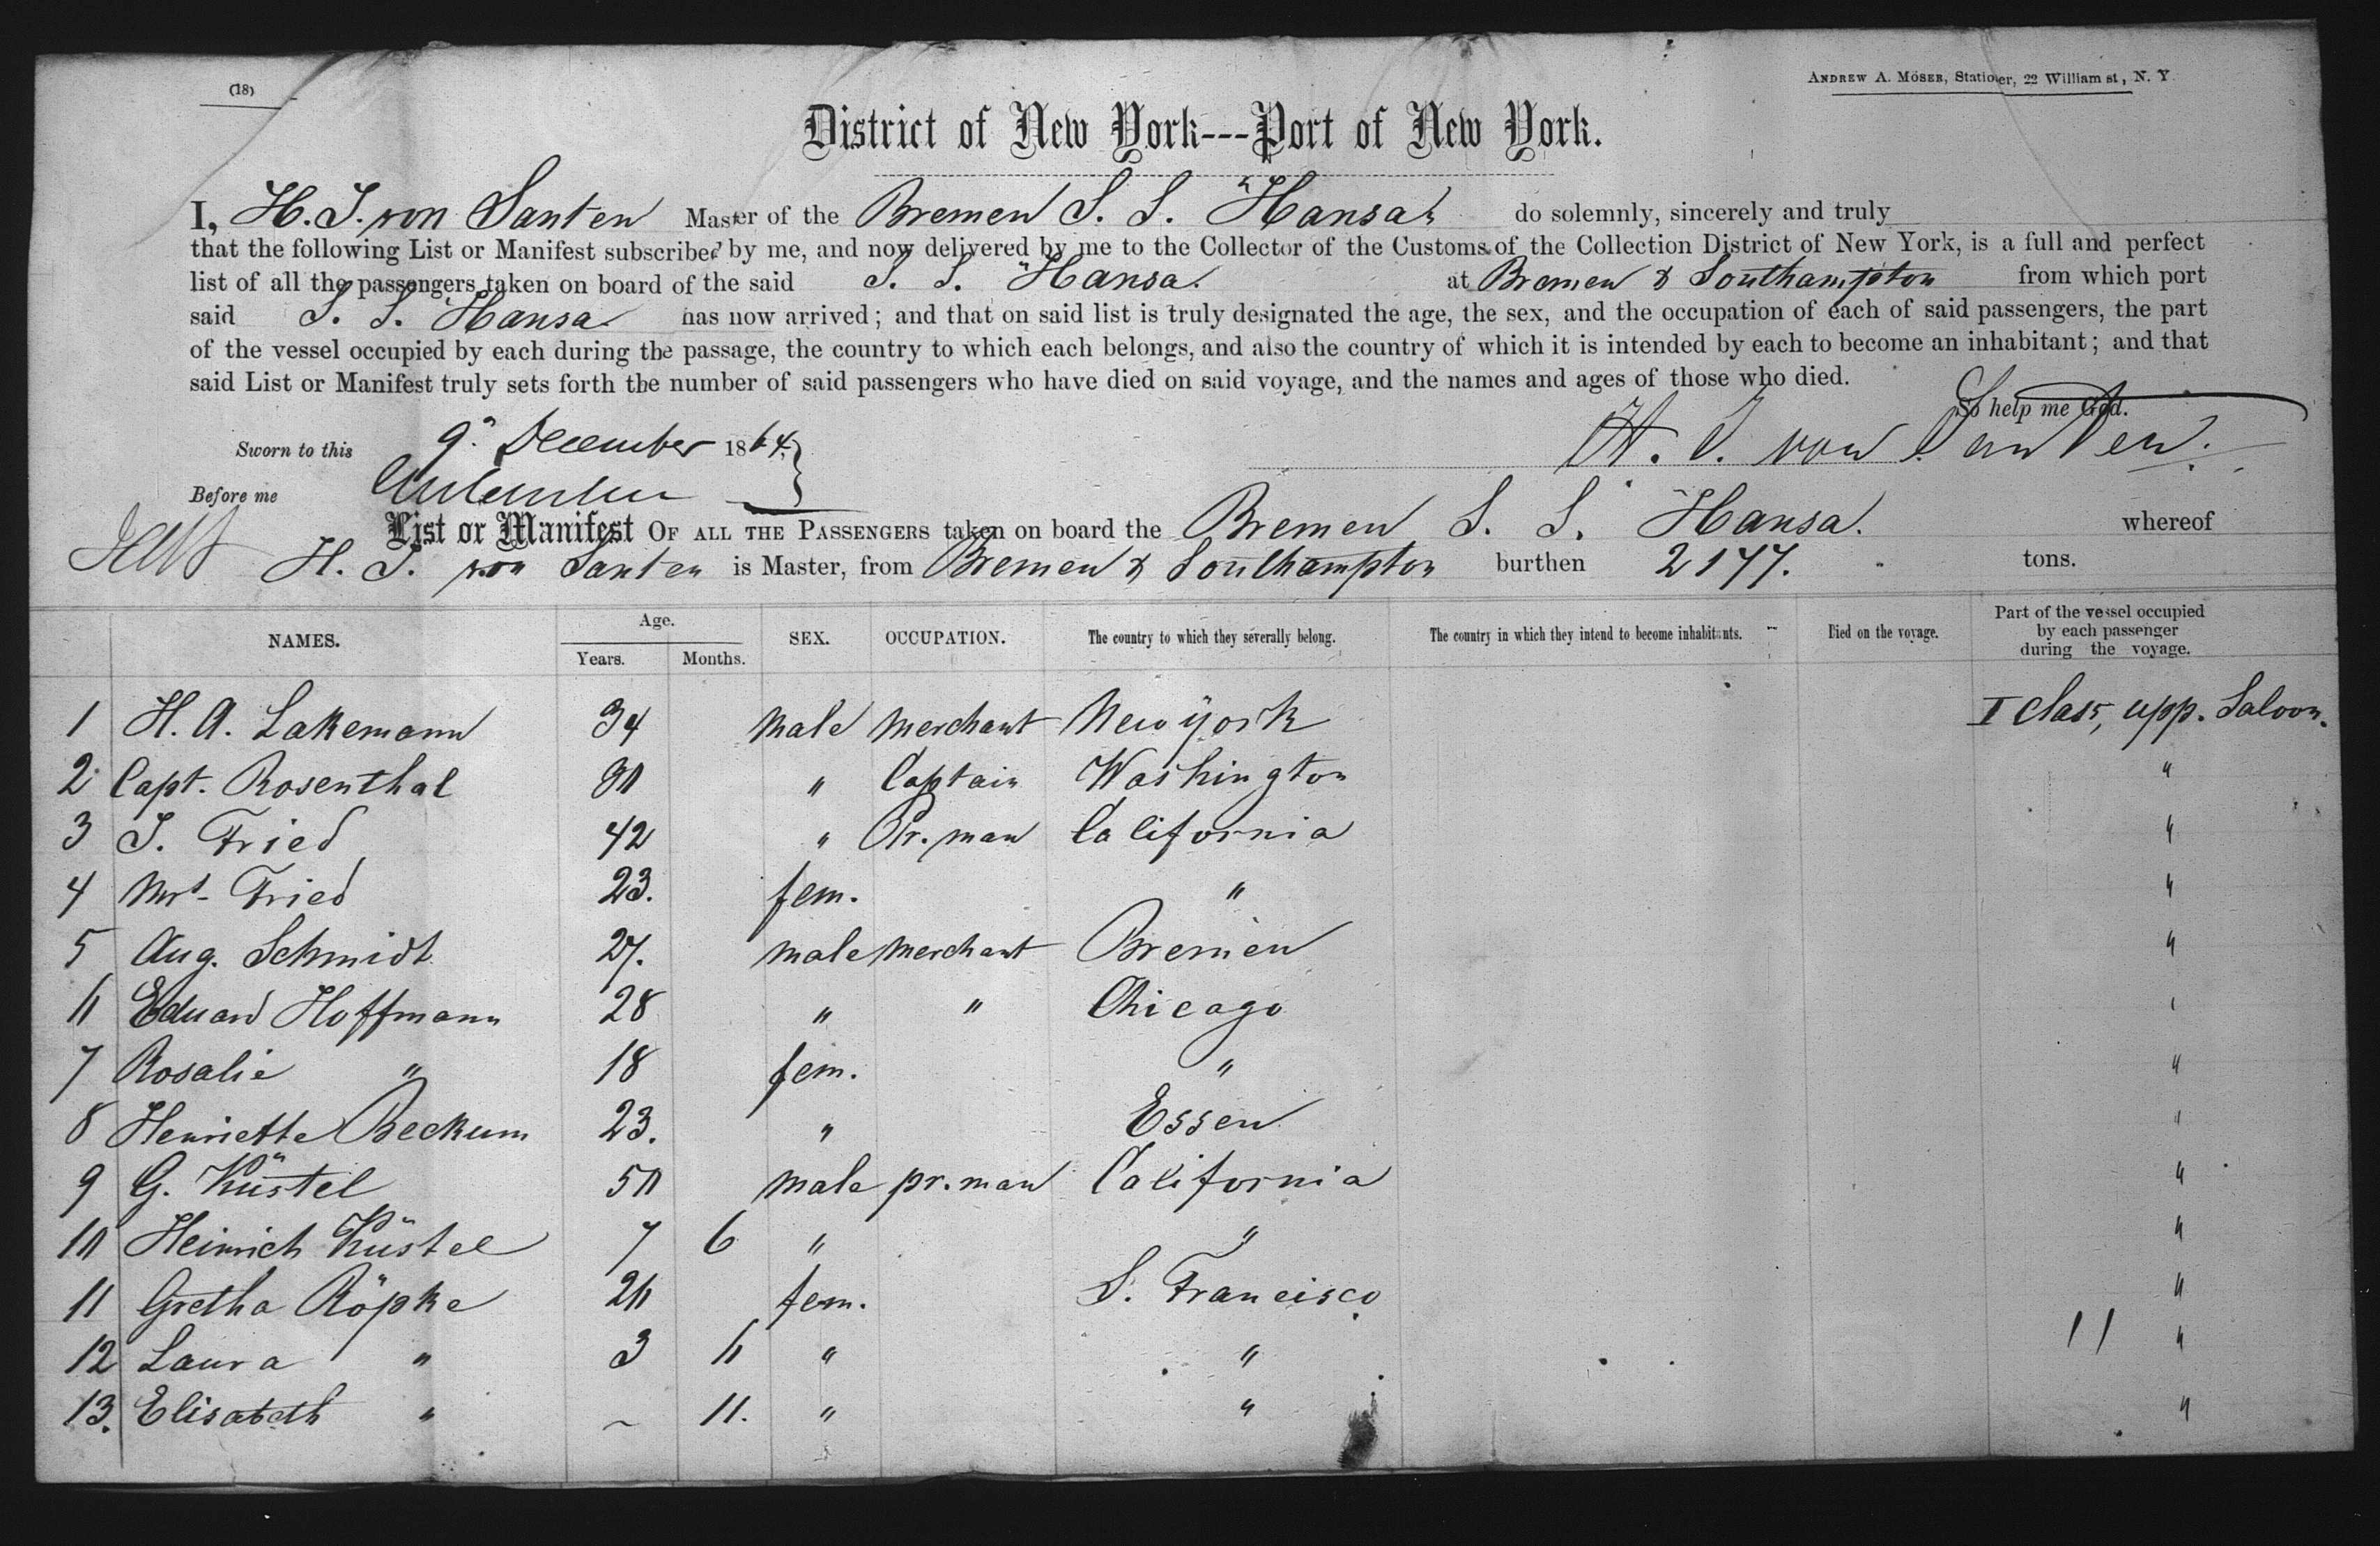 (18)
ANDREW A. MÖSER, Stationer, 22 William st, N. Y.
District of New York---Port of New York.
I, H. J. von Santen Master of the Bremen S. S. "Hansa" do solemnly, sincerely and truly
that the following List or Manifest subscribed by me, and now delivered by me to the Collector of the Customs of the Collection District of New York, is a full and perfect
list of all the passengers taken on board of the said S. S. "Hansa. at Bremen & Southampton from which port
said S. S. Hansa. has now arrived; and that on said list is truly designated the age, the sex, and the occupation of each of said passengers, the part
of the vessel occupied by each during the passage, the country to which each belongs, and also the country of which it is intended by each to become an inhabitant; and that
said List or Manifest truly sets forth the number of said passengers who have died on said voyage, and the names and ages of those who died.
So help me God.
Sworn to this 9. December 1864. H. J. von Santen.
Before me
List or Manifest OF ALL THE PASSENGERS taken on board the Bremen S. S. Hansa. whereof
H. J. von Santen is Master, from Bremen & Southampton burthen 2177. tons.
NAMES. Age. Years. Months. SEX. OCCUPATION. The country to which they severally belong. The country in which they intend to become inhabitants. Died on the voyage. Part of the vessel occupied by each passenger during the voyage.
1 H. A. Lakemann 34 male merchant New york I Class, upp. Saloon.
2 Capt. Rosenthal 30 " Captain Washington "
3 J. Fried 42 " Pr. man California "
4 Mrs Fried 23. fem. " "
5 Aug. Schmidt 27. male merchant Bremen "
6 Eduard Hoffmann 28 " " Chicago "
7 Rosalie " 18 fem. " "
8 Henriette Beckum 23. " Essen "
9 G. Küstel 50 male pr. man California "
10 Heinrich Küstel 7 6 " " "
11 Gretha Röpke 26 fem. S. Francisco "
12 Laura " 3 6 " " 11 "
13. Elisabeth " ~ 11. " " "